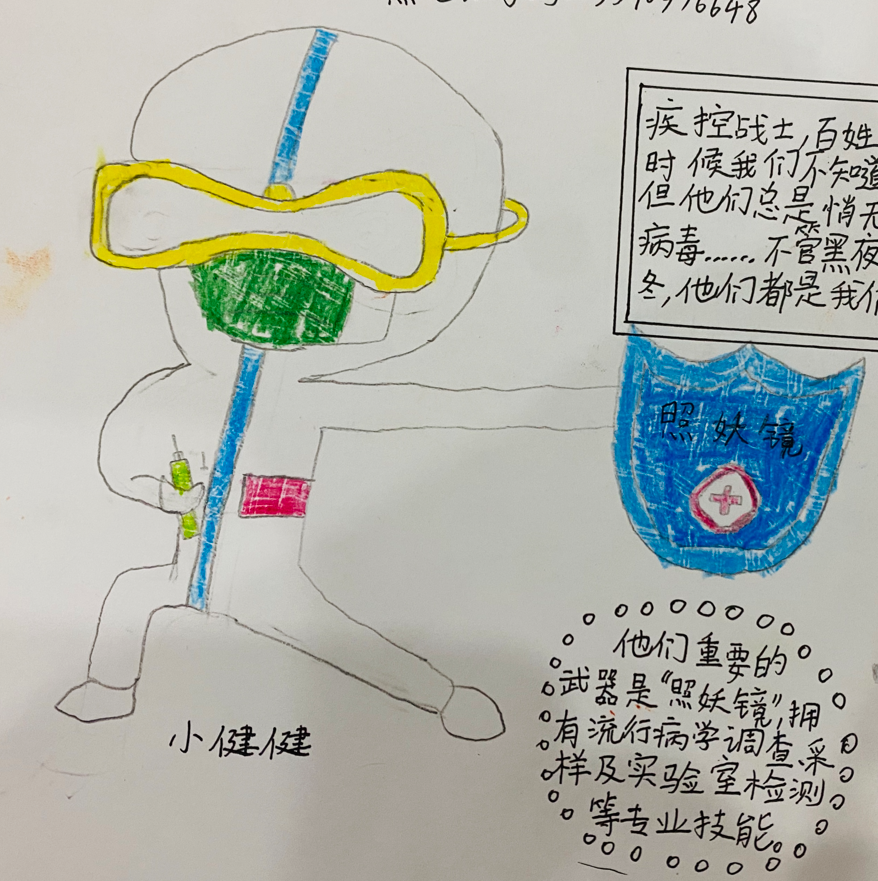 6648
疾控战士,百姓
时候我们不知道
但他们总是悄无
病毒......不管黑夜
冬,他们都是我们
照妖镜
他们重要的
武器是“照妖镜”,拥
有流行病学调查采
样及实验室检测
等专业技能。
小健健